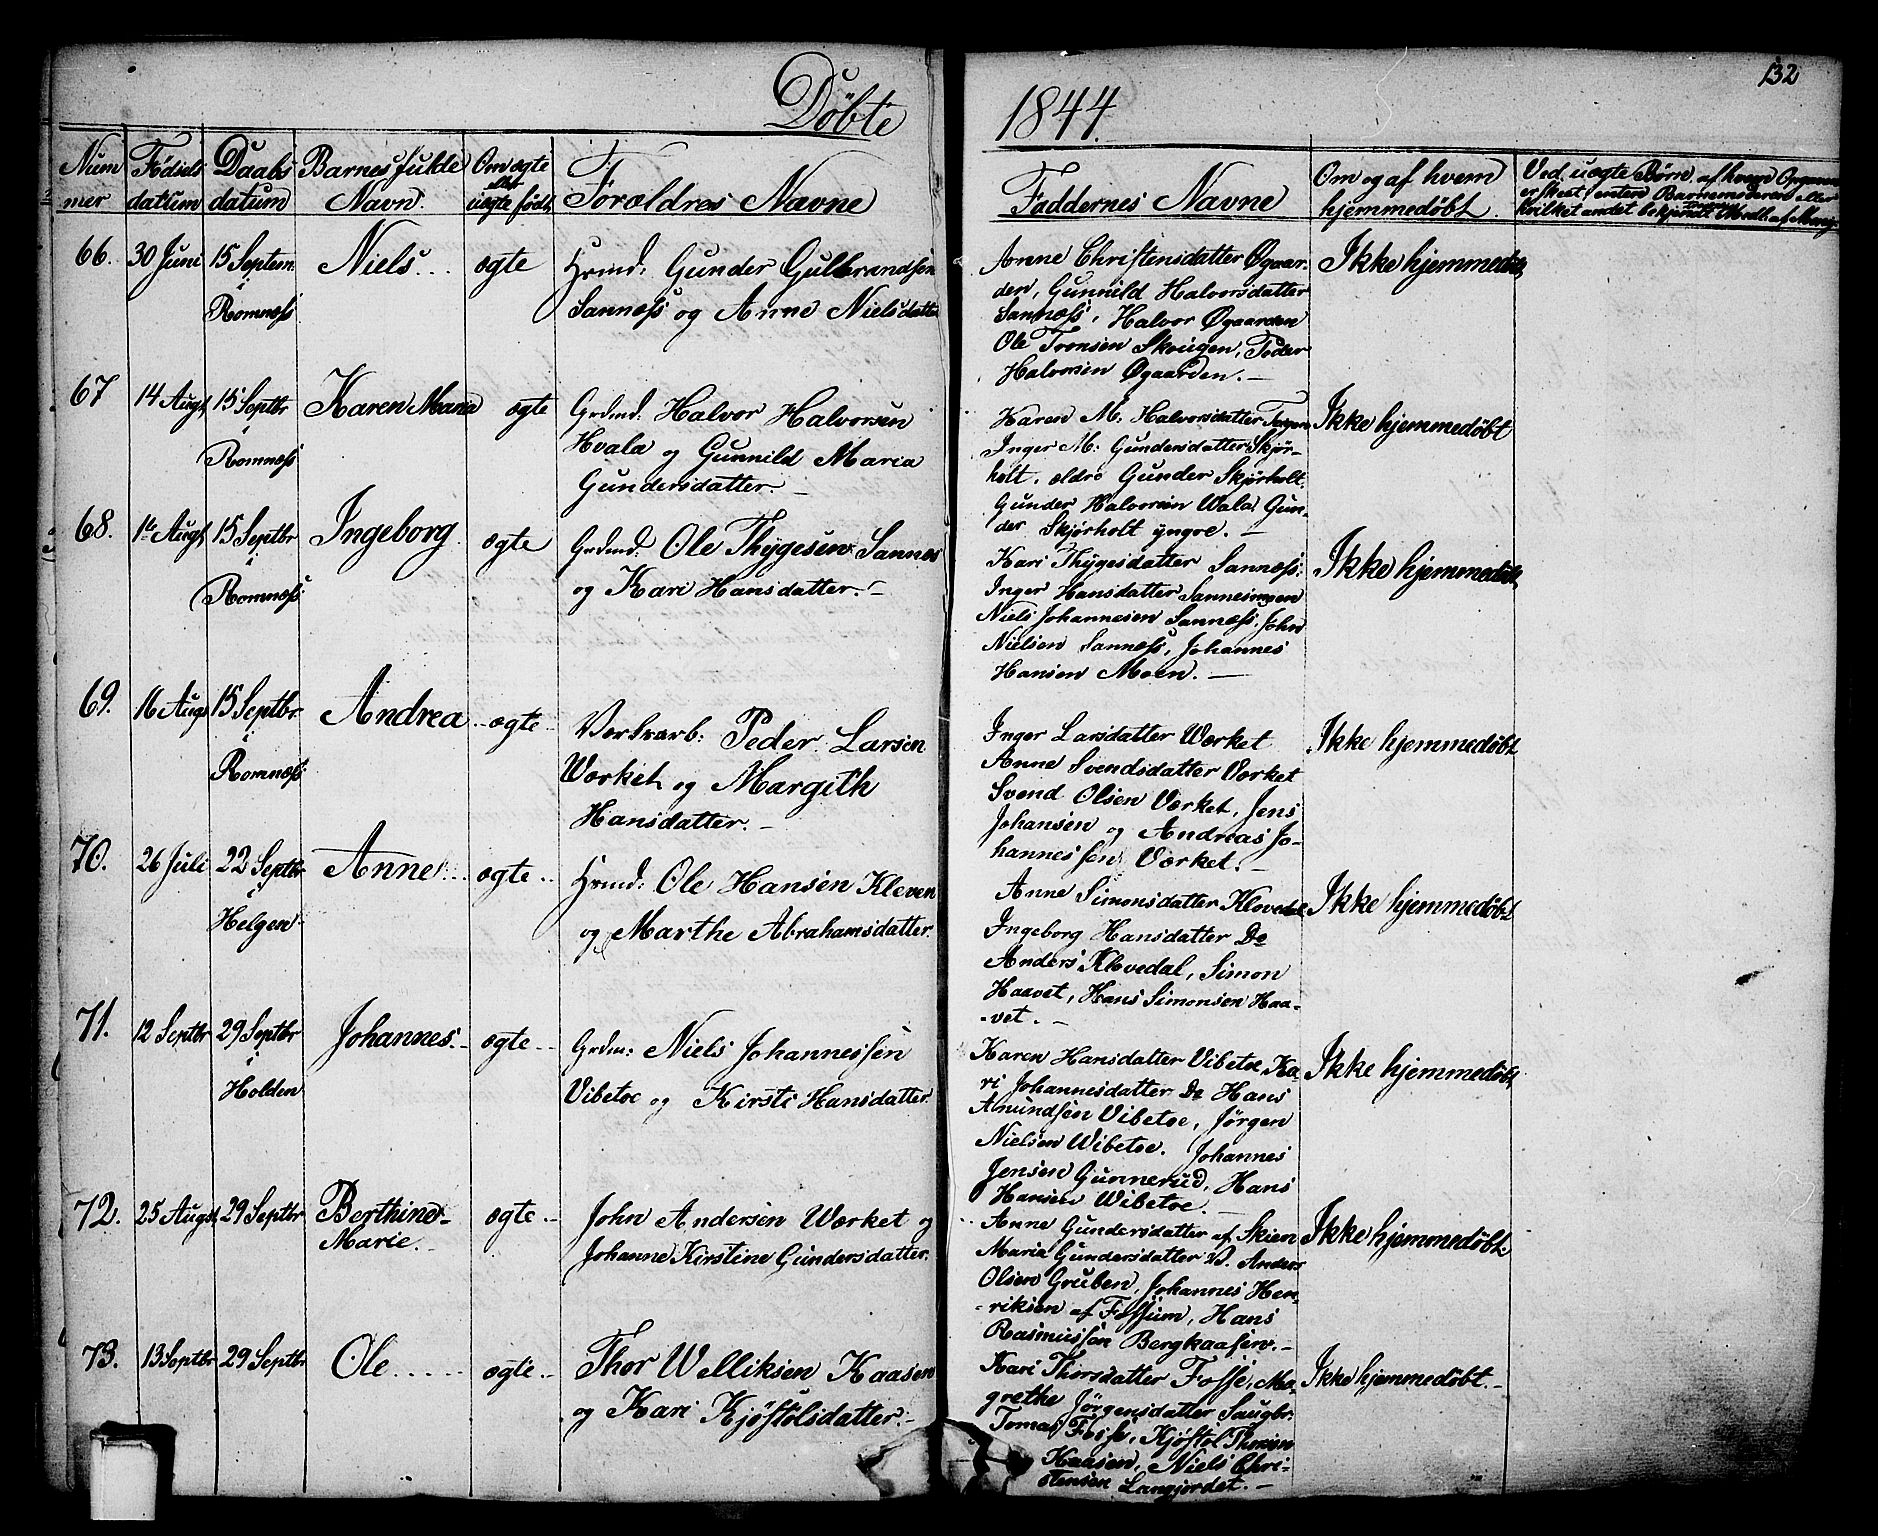 132
Døbte 1844.
Nummer
Fødselsdatum
Daabsdatum
Barnets fulde Navn.
Om ægte eller uægte født
Forældres Navne
Faddernes Navne
Om og af hvem hjemmedøbt.
Ved uægte Børn af hvem
66. 30 Juni 15 Septem. i Romnæss Niels ægte
Hrmd: Gunder Gulbrandsen
Sannæss og Anne Nielsdatter
Anne Christensdatter Øgaar-
den, Gunnild Halvorsdatter
Sannæss, Halvor Øgaarden
Ole Tronsen Skougen, Peder
Halvorsen Øgaarden. —
Ikke hjemmedøbt
67 14 Augst 15 Septbr i Romnæss Karen Maria ægte
Grdmd. Halvor Halvorsen
Hvala og Gunnild Maria
Gundersdatter. —
Karen M: Halvorsdatter
Inger M: Gundersdatter Skjør-
holt. ældre Gunder Skjørholt.
Gunder Halvorsen Wala, Gun-
der Skjørholt yngre. —
Ikke hjemmedøbt
68. 1te Augst 15 Septbr i Romnæss Ingeborg ægte
Grdmd. Ole Thygesen Sannes
og Kari Hansdatter. —
Kari Thygesdatter Sannæss.
Inger Hansdatter
Niels Johannesen Sannæss. John
Nielsen Sannæss, Johannes
Hansen Moen. —
Ikke hjemmedøbt
69. 16 Augs 15 Septbr. i Romnæss Andrea ægte
Værksarb: Peder Larsen
Værket og Margith
Hansdatter. —
Inger Larsdatter Værket
Anne Svendsdatter Værket
Svend Olsen Værket, Jens
Johansen og Andreas Jo-
hannessen Værket. —
Ikke hjemmedøbt
70. 26 Juli 22 Septbr. i Helgen Anne ægte
Hrmd: Ole Hansen Kleven
og Marthe Abrahamsdatter.
Anne Simonsdatter Klevedal
Ingeborg Hansdatter Do
Anders Klevedal, Simon
Haavet, Hans Simonsen Haa-
-vet. —
Ikke hjemmedøbt
71. 12 Septbr 29 Septbr i Holden Johannes ægte
Grdm: Niels Johannessen
Vibetoe og Kirsti Hansdatter.
Karen Hansdatter Vibetoe, Ka-
ri Johannesdatter Do Hans
Amundsen Vibetoe, Jørgen
Nielsen Wibetoe. Johannes
Jensen Gunnerud, Hans
Hansen Wibetoe. —
Ikke hjemmedøbt
72. 25 Augst 29 Septbr Berthine Marie. ægte
John Andersen Værket og
Johanne Kirstine Gundersdatter.
Anne Gundersdatter af Skien
Maria Gundersdatter V. Anders
Olsen Gruben, Johannes Hen-
-riksen af Fossum, Hans
Rasmussen Bergkaasen. —
Ikke hjemmedøbt.
73. 13 Septbr 29 Septbr Ole ægte
Thor Welliksen Kaasen
og Kari Kjøstolsdatter. —
Kari Thorsdatter Fosse, Ma-
grethe Jørgensdatter Saugbr:
Tomas Fosse, Kjøstol Thorsen
Kaasen, Niels Chri-
stensen Langjordet. —
Ikke hjemmedøbt. —